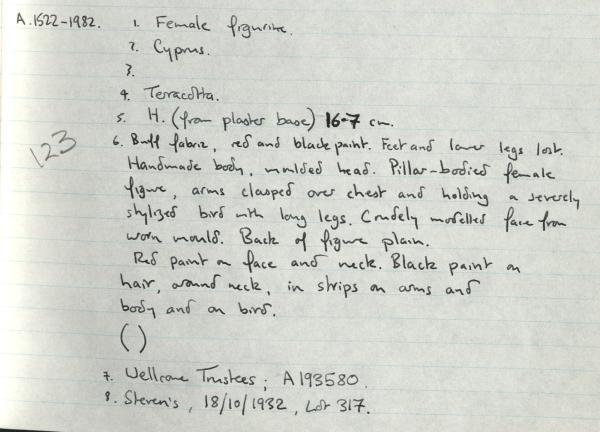 A.1522-1982. 1. Female figurine.
2. Cyprus.
3.
4. Terracotta.
5. H. (from plaster base) 16.7 cm.
123
6. Buff fabric, red and black paint. Feet and lower legs lost.
Handmade body, moulded head. Pillar-bodied female
figure, arms clasped over chest and holding a severely
stylized bird with long legs. Crudely modelled face from
worn mould. Back of figure plain.
Red paint on face and neck. Black paint on
hair, around neck, in strips on arms and
body and on bird.
( )
7. Wellcome Trustees; A193580.
8. Steven's, 18/10/1932, Lot 317.